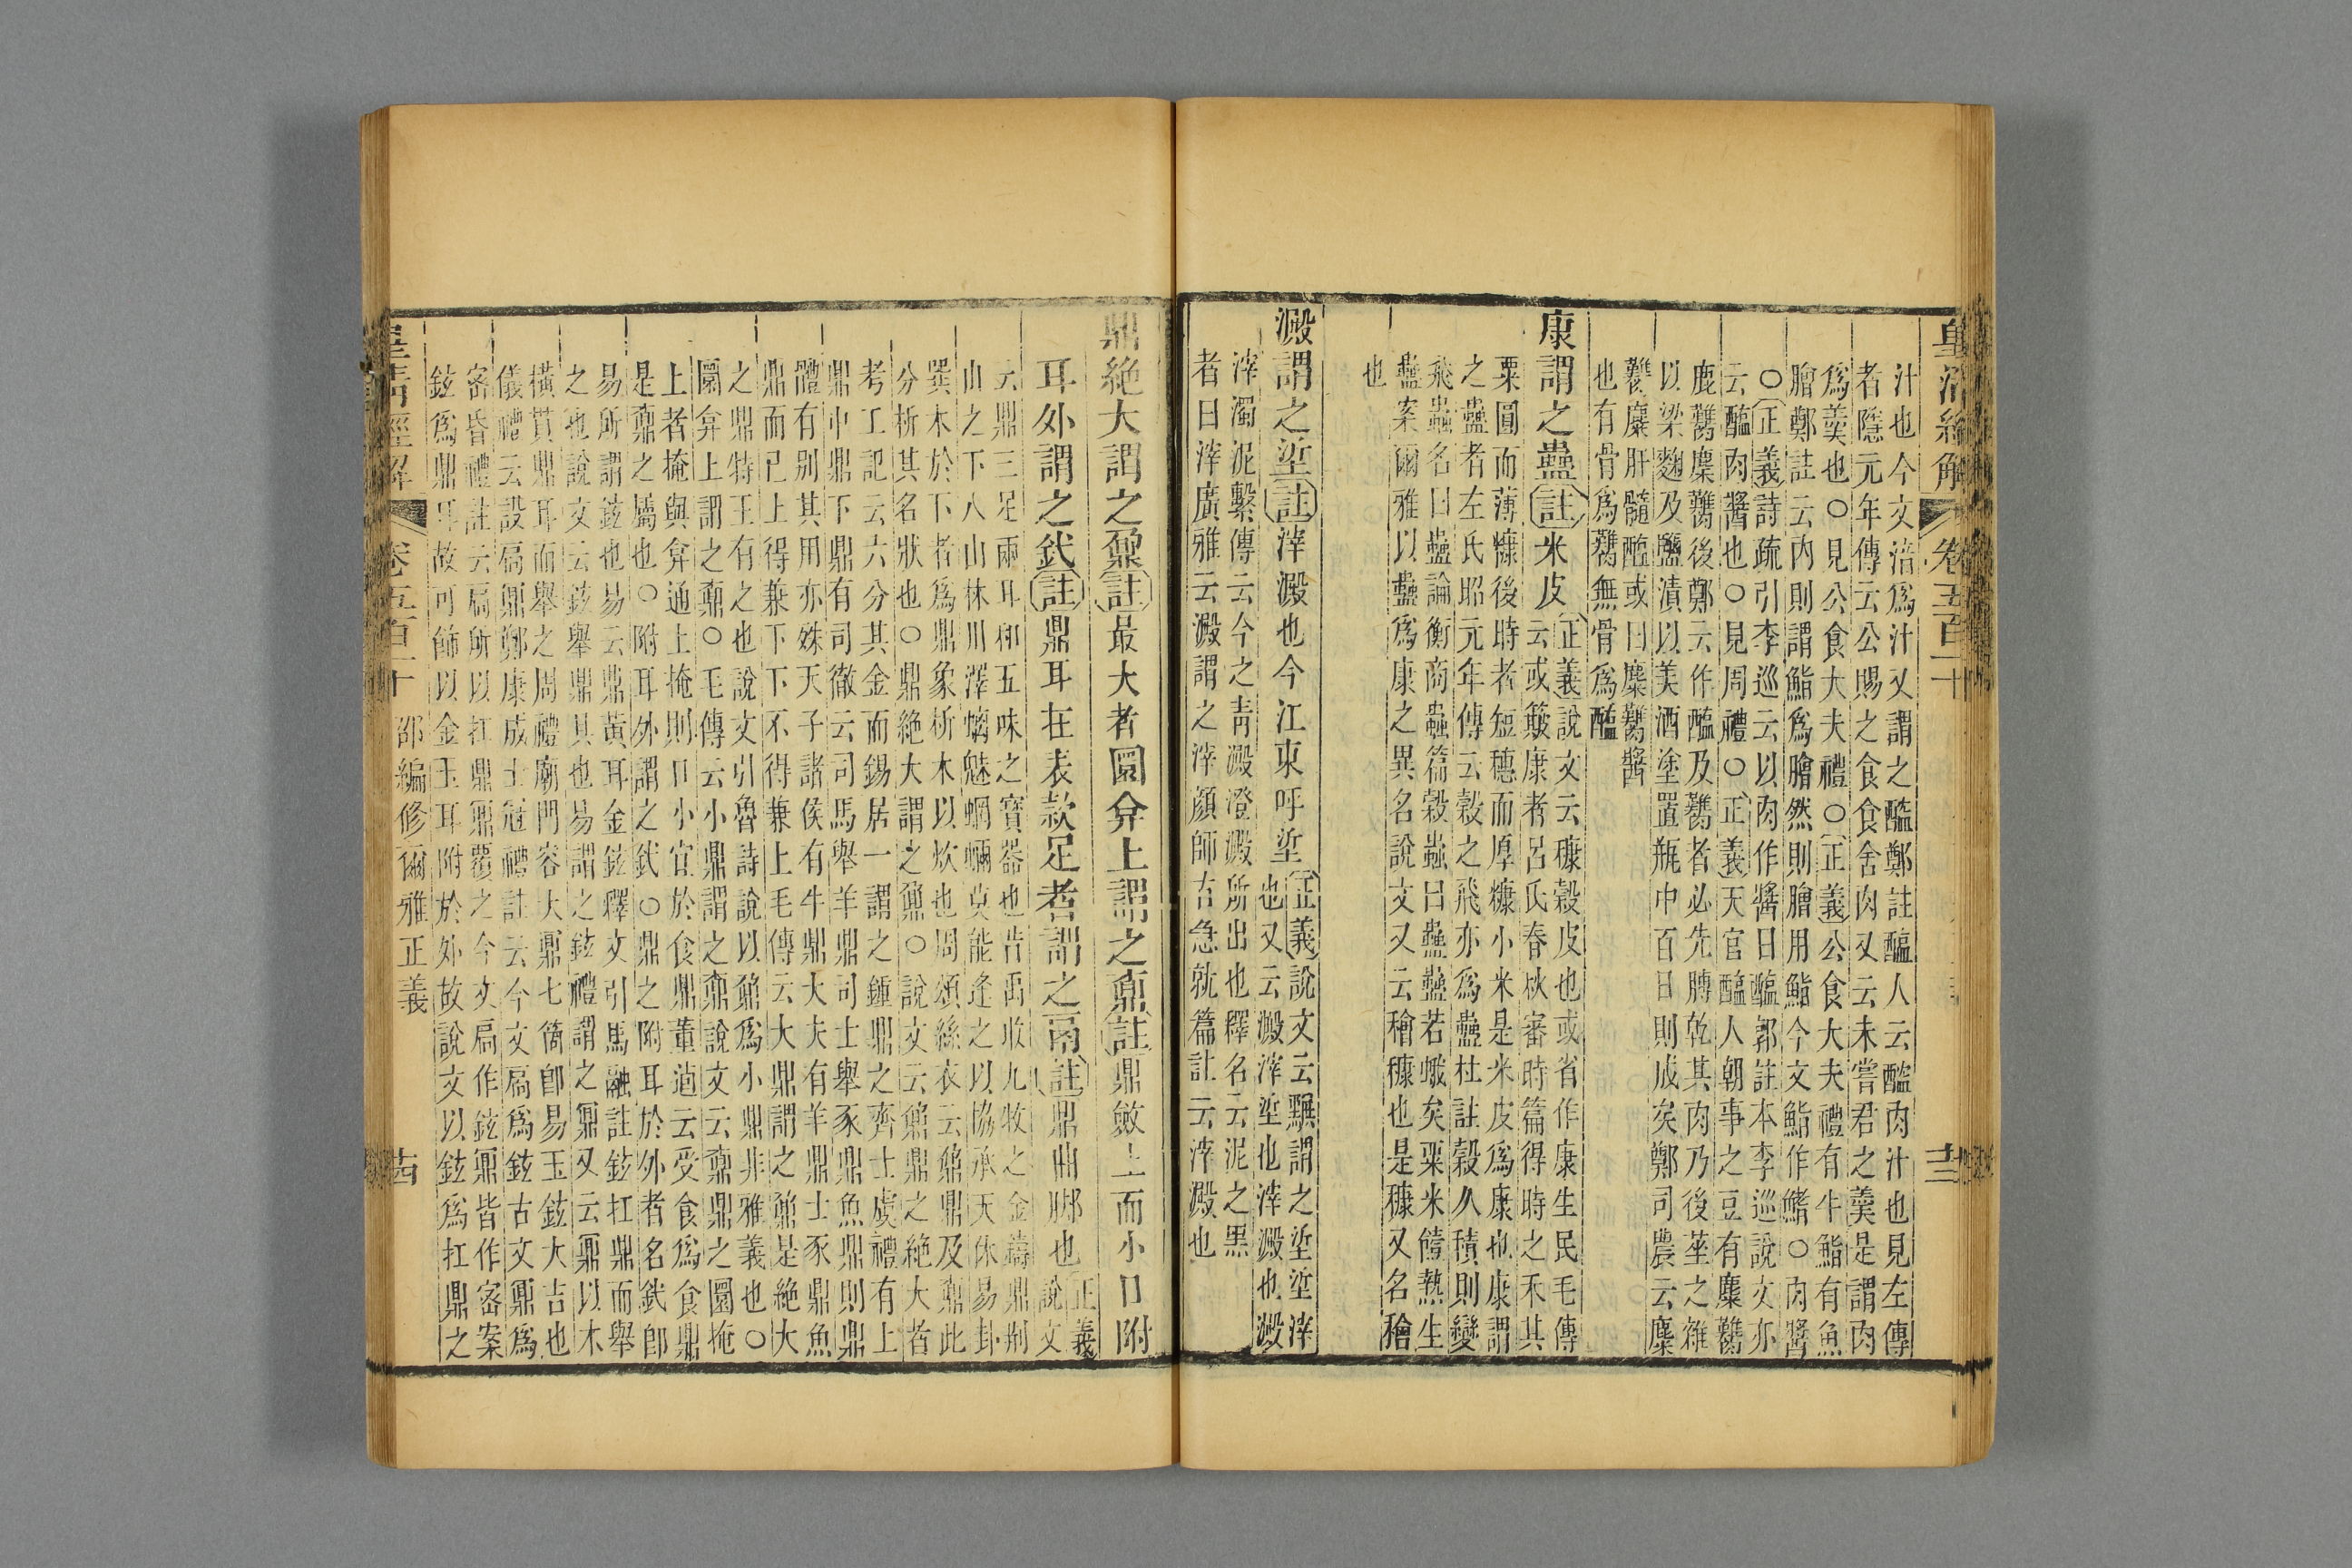 皇清經解 卷五百一十 十三
汁也今文湇爲汁又謂之醢鄭註醢人云醢肉汁也見左傳
者隱元年傳云公賜之食食舍肉又云未嘗君之羹是謂肉
爲羹也○見公食大夫禮○正義公食大夫禮有牛鮨有魚
膾鄭註云內則謂鮨爲膾然則膾用鮨今文鮨作鰭○肉醬
○正義詩疏引李巡云以肉作醬曰醢郭註本李巡說文亦
云醢肉醬也○見周禮○正義天官醢人朝事之豆有麋臡
鹿臡麇臡後鄭云作醢及臡者必先膊乾其肉乃後莝之雜
以梁麴及鹽漬以美酒塗置瓶中百日則成矣鄭司農云麋
臡麋肝髓醢或曰麋臡醬
也有骨爲臡無骨爲醢
康謂之蠱註米皮
正義說文云穅穀皮也或省作康生民毛傳
云或簸康者呂氏春秋審時篇得時之禾其
粟圓而薄糠後時者短穗而厚糠小米是米皮爲康也康謂
之蠱者左氏昭元年傳云穀之飛亦爲蠱杜註穀久積則變
飛蟲名曰蠱論衡商蟲篇穀蟲曰蠱蠱若蛾矣粟米饐熱生
蠱案爾雅以蠱爲康之異名說文又云穭糠也是糠又名穭
也
澱謂之垽註滓澱也今江東呼垽
正義說文云澱謂之垽垽滓
也又云澱滓垽也滓澱也澱
滓濁泥繫傳云今之靑澱澄澱所出也釋名云泥之黑
者曰滓廣雅云澱謂之滓顏師古急就篇註云滓澱也
鼎絕大謂之鼐註最大者圜弇上謂之鼒註鼎斂上而小口附
耳外謂之釴註鼎耳在表款足者謂之鬲註鼎曲脚也
正義
說文
云鼎三足兩耳和五味之寶器也昔禹收九牧之金鑄鼎荆
山之下入山林川澤螭魅蝄蜽莫能逢之以協承天休易卦
巽木於下者爲鼎象析木以炊也周頌絲衣云鼐鼎及鼒此
分析其名狀也○鼎絕大謂之鼐○說文云鼐鼎之絕大者
考工記云六分其金而錫居一謂之鍾鼎之齊士虞禮有上
鼎中鼎下鼎有司徹云司馬舉羊鼎司士舉豕鼎魚鼎則鼎
體有別其用亦殊天子諸侯有牛鼎大夫有羊鼎士豕鼎魚
鼎而已上得兼下下不得兼上毛傳云大鼎謂之鼐是絕大
之鼎特王有之也說文引魯詩說以鼐爲小鼎非雅義也○
圜弇上謂之鼒○毛傳云小鼎謂之鼒說文云鼒鼎之圜掩
上者掩與弇通上掩則口小宜於食鼎董逌云受食爲食鼎
是鼒之屬也○附耳外謂之釴○鼎之附耳於外者名釴卽
易所謂鉉也易云鼎黃耳金鉉釋文引馬融註鉉扛鼎而舉
之也說文云鉉舉鼎具也易謂之鉉禮謂之鼏又云鼏以木
橫貫鼎耳而舉之周禮廟門容大鼏七箇卽易玉鉉大吉也
儀禮云設扃鼏鄭康成士冠禮註云今文扃爲鉉古文鼏爲
密昏禮註云扃所以扛鼎鼏覆之今文扃作鉉鼏皆作密案
鉉爲鼎耳故可飾以金玉耳附於外故說文以鉉爲扛鼎之
皇清經解 卷五百一十 邵編修爾雅正義 十四